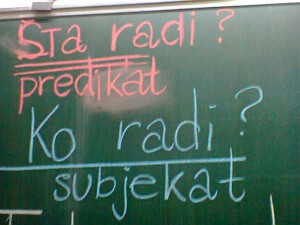 Šta radi?
predikat
Ko radi?
subjekat